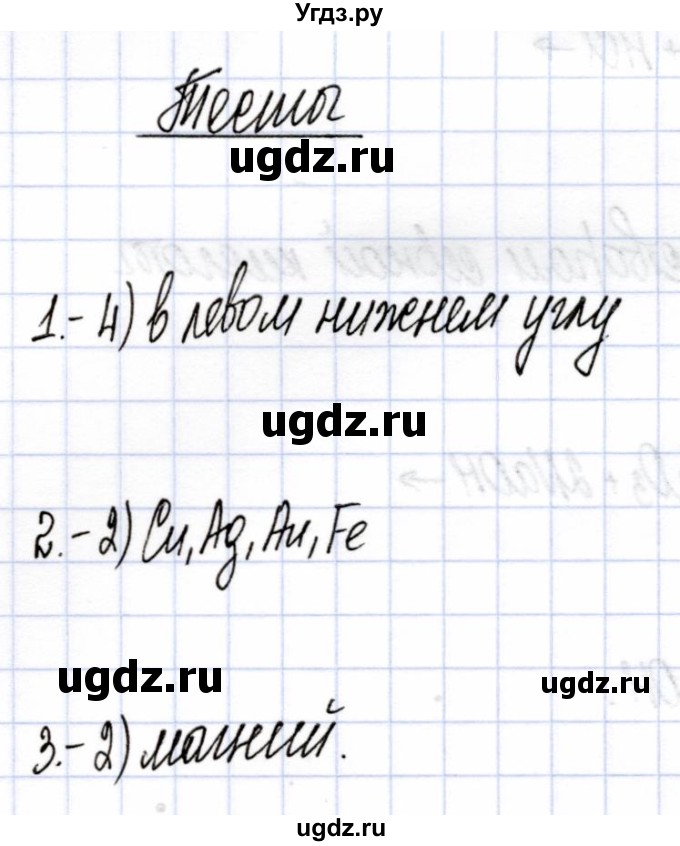 Угдз.ру
Тесты
ugdz.ru
1.- 4) в левом нижнем углу
ugdz.ru
2.- 2) Cu, Ag, Au, Fe
ugdz.ru
ugdz.ru
3.- 2) магний.
ugdz.ru